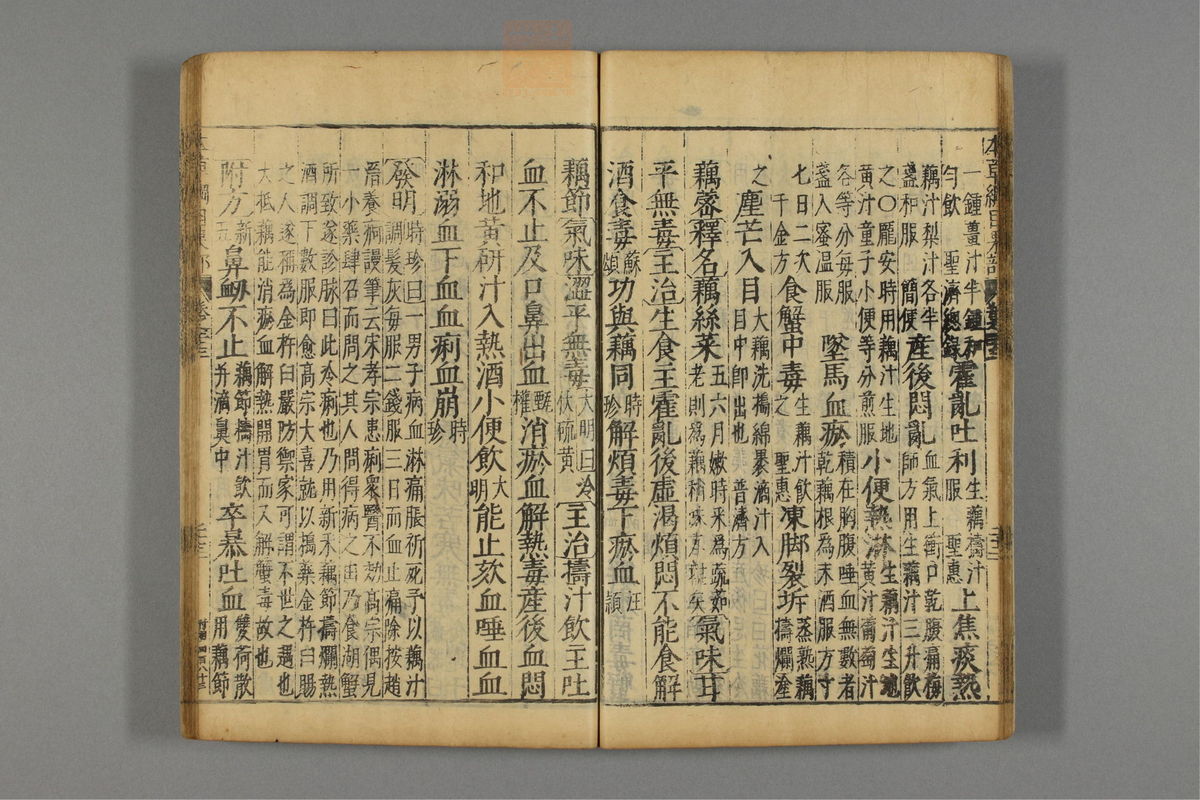 本草綱目果部
一鍾薑汁半鍾和
勻飲 聖濟總錄
霍亂吐利
生藕擣汁
服 聖惠
上焦痰熱
藕汁梨汁各半
盞和服 簡便
產後悶亂
血氣上衝口乾腹痛梅
師方用生藕汁三升飲
之○龐安時用藕汁生地
黃汁童子小便等分煎服
小便熱淋
生藕汁生地
黃汁葡萄汁
各等分每服
盞入蜜温服
墜馬血瘀
積在胸腹唾血無數者
乾藕根為末酒服方寸
七日二次
千金方
食蟹中毒
生藕汁飲
之 聖惠
凍脚裂坼
蒸熟藕
擣爛塗
之
塵芒入目
大藕洗搗綿裹滴汁入
目中即出也 普濟方
藕蔤 釋名 藕絲菜
五六月嫩時采為蔬茹
老則為藕稍味不堪矣
氣味甘
平無毒 主治 生食主霍亂後虛渴煩悶不能食解
酒食毒 蘇頌 功與藕同 時珍 解煩毒下瘀血 汪穎
藕節 氣味 澀平無毒
大明曰冷
伏硫黃
主治 擣汁飲主吐
血不止及口鼻出血 甄權 消瘀血解熱毒產後血悶
和地黃研汁入熱酒小便飲 大明 能止欬血唾血血
淋溺血下血血痢血崩 時珍
發明 時珍曰一男子病血淋痛脹祈死予以藕汁
調髮灰每服二錢服三日而血止痛除按趙
溍養疴謾筆云宋孝宗患痢衆醫不効高宗偶見
一小藥肆召而問之其人問得病之由乃食湖蟹
所致遂診脉曰此冷痢也乃用新采藕節擣爛熱
酒調下數服即愈高宗大喜就以搗藥金杵臼賜
之人遂稱為金杵臼嚴防禦家可謂不世之遇也
大抵藕能消瘀血解熱開胃而又解蟹毒故也
附方 新五 鼻衄不止
藕節擣汁飲
并滴鼻中
卒暴吐血
雙荷散
用藕節